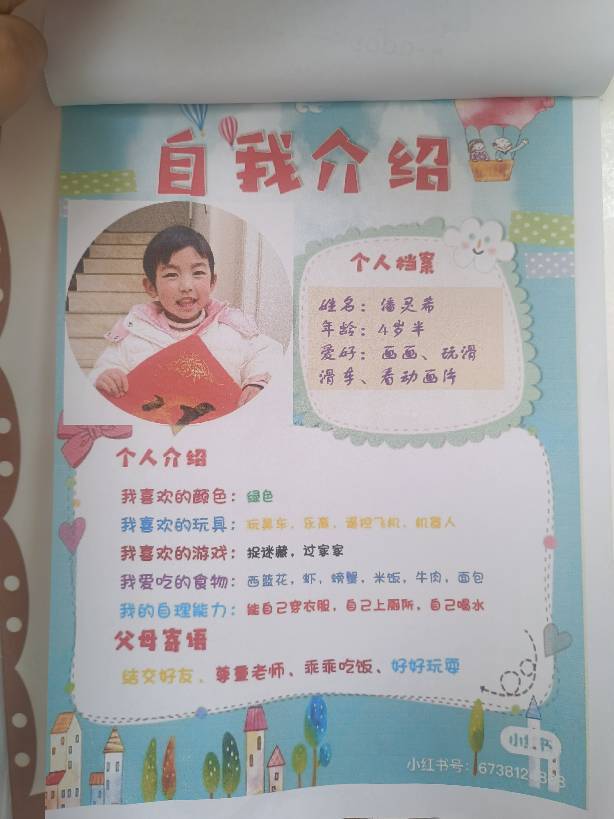 自我介绍
个人档案
姓名：潘灵希
年龄：4岁半
爱好：画画、玩滑
滑车、看动画片
个人介绍
我喜欢的颜色：绿色
我喜欢的玩具：玩具车，乐高，遥控飞机，机器人
我喜欢的游戏：捉迷藏，过家家
我爱吃的食物：西蓝花，虾，螃蟹，米饭，牛肉，面包
我的自理能力：能自己穿衣服，自己上厕所，自己喝水
父母寄语
结交好友、尊重老师、乖乖吃饭、好好玩耍
小红书
小红书号：